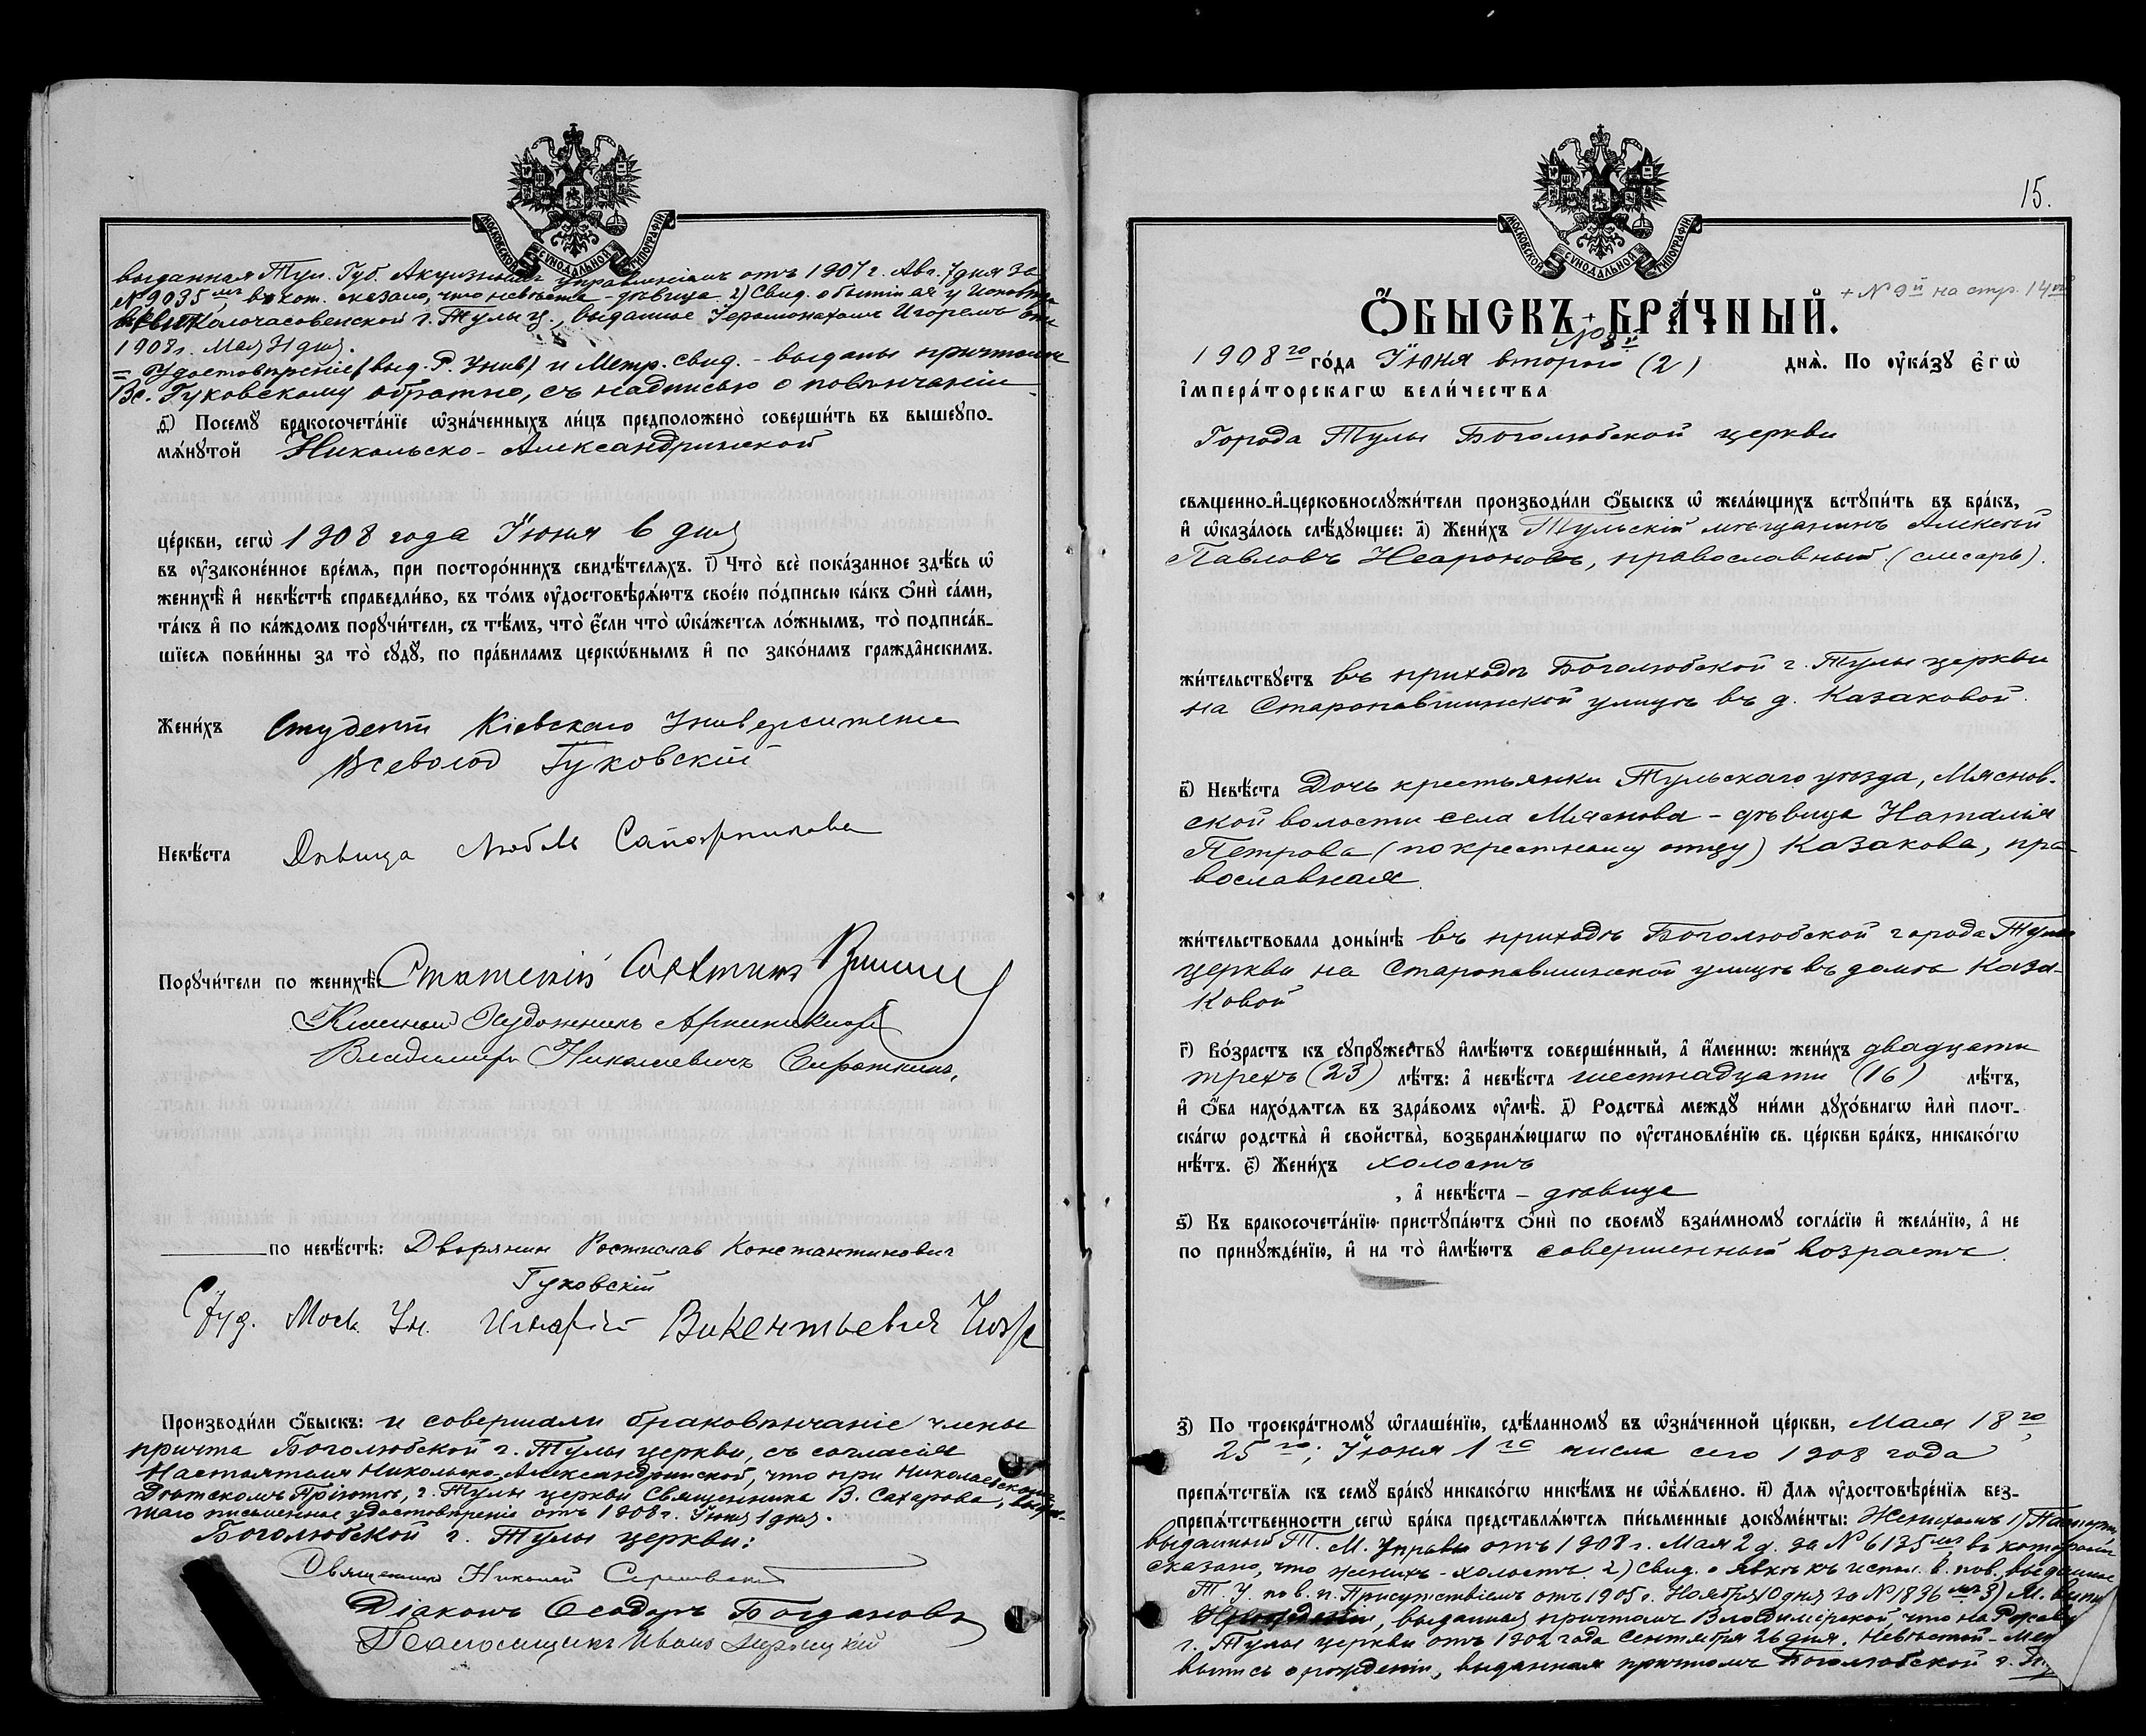 МОСКОВСКОЙ СѴНОДАЛЬНОЙ ТИПОГРАФІИ
выданная Тул. Губ. Акцизнымъ Управленіемъ отъ 1907 г. Авг. 7 дня за
№ 9035 мъ въ кот. сказано, что невѣста - дѣвица 2) Свид. о бытіи ея у Исповѣди
Колочасовенской г. Тулы ц., выданное Іеромонахомъ Игоремъ отъ
1908 г. Мая 31 дня.
= Удостовѣреніе (выд. Р. Унив.) и Метр. свид. - выданы причтомъ
Вс. Гуковскому обратно, съ надписью о повѣнчаніи
ѳ҃) Посемꙋ бракосочета́нїе ѡ҆зна́ченныхъ ли́цъ предположено̀ соверши́ть въ вышеꙋпо-
мѧ́нꙋтой Никольско - Александринской
це́ркви, сегѡ̀ 1908 года Іюня 6 дня
въ ᲂу҆законе́нное вре́мѧ, при посторо́ннихъ свидѣ́телѧхъ. і҃) Что̀ всѐ пока́занное здѣ́сь ѡ҆
женихѣ̀ и҆ невѣ́стѣ справедли́во, въ то́мъ ᲂу҆достовѣрѧ́ютъ свое́ю по́дписью ка́къ ѻ҆нѝ са́ми,
та́къ и҆ по ка́ждомъ порꙋчи́тели, съ тѣ́мъ, что̀ є҆́сли что̀ ѡ҆ка́жетсѧ ло́жнымъ, то̀ подписа́в-
шїесѧ пови́нны за то̀ сꙋдꙋ̀, по пра́виламъ церкѡ́внымъ и҆ по зако́намъ гражда́нскимъ.
Жени́хъ Студентъ Кіевскаго Университета
Всеволод Гуковскій
Невѣ́ста Дѣвица Любовь
Порꙋчи́тели по женихѣ̀: Статскій Совѣтникъ
Классный Художникъ Архитекторъ
Владимиръ Николаевичъ Сироткинъ,
по невѣ́стѣ: Дворянин Ростислав Константинович
Гуковскій
Студ. Моск. Ун. Викентьевич
Производи́ли ѻ҆́быскъ: и совершали браковѣнчаніе члены
причта Боголюбской г. Тулы церкви, съ согласія
Настоятеля Никольско-Александринской, что при Николаевскомъ
Дѣтскомъ Пріютѣ, г. Тулы церкви Священника В. Сахарова,
письменное удостовѣреніе отъ 1908 г. Іюня 1 дня.
Боголюбской г. Тулы церкви:
Священникъ Николай
Діаконъ Ѳеодоръ Богдановъ
Псаломщикъ Иванъ
15.
МОСКОВСКОЙ СѴНОДАЛЬНОЙ ТИПОГРАФІИ
+ № 9й на стр. 14
Ѻ҆́БЫСКЪ БРА́ЧНЫЙ.
+ № 8й
1908 го го́да Іюня второго (2) днѧ̀. По ᲂу҆ка́зꙋ є҆гѡ̀
і҆мпера́торскагѡ вели́чества
Города Тулы Боголюбской церкви
свѧщенно-и҆-церковнослꙋжи́тели производи́ли ѻ҆́быскъ ѡ҆ жела́ющихъ встꙋпи́ть въ бра́къ,
и҆ ѡ҆каза́лось слѣ́дꙋющее: а҃) Жени́хъ Тульскій мѣщанинъ Алексѣй
Павловъ православный (слесарь).
жи́тельствꙋетъ въ приходѣ Боголюбской г. Тулы церкви
на Старопавшинской улицѣ въ д. Казаковой.
в҃) Невѣ́ста Дочь крестьянки Тульскаго уѣзда, Мяснов-
ской волости села Мяснова - дѣвица Наталія
Петрова (по крестному отцу) Казакова, пра-
вославная.
жи́тельствовала доны́нѣ въ приходѣ Боголюбской города Тулы
церкви на Старопавшинской улицѣ въ домѣ Каза-
ковой
г҃) Во́зрастъ къ сꙋпрꙋ́жествꙋ и҆мѣ́ютъ соверше́нный, а҆ и҆́меннѡ: жени́хъ двадцати
трехъ (23) лѣ́тъ: а҆ невѣ́ста шестнадцати (16) лѣ́тъ,
и҆ ѻ҆́ба нахо́дѧтсѧ въ здра́вомъ ᲂу҆мѣ̀. д҃) Родства̀ междꙋ̀ ни́ми дꙋхо́внагѡ и҆лѝ плот-
ска́гѡ родства̀ и҆ сво́йства̀, возбранѧ́ющагѡ по ᲂу҆становле́нїю св. це́ркви бра́къ, никако́гѡ
нѣ́тъ. є҃) Жени́хъ холостъ
, а҆ невѣ́ста - дѣвица
ѕ҃) Къ бракосочета́нїю пристꙋпа́ютъ ѻ҆нѝ по своемꙋ̀ взаи́мномꙋ согла́сїю и҆ жела́нїю, а҆ не
по принꙋжде́нїю, и҆ на то̀ и҆мѣ́ютъ совершенный возрастъ.
з҃) По троекра́тномꙋ ѡ҆глаше́нїю, сдѣ́ланномꙋ въ ѡ҆зна́ченной це́ркви, Мая 18 го,
25 го, Іюня 1 го числа сего 1908 года
препѧ́тствїѧ къ семꙋ̀ бра́кꙋ никако́гѡ никѣ́мъ не ѡ҆б̾ѧ́влено. и҃) Длѧ ᲂу҆достовѣре́нїѧ без-
препѧ́тственности сегѡ̀ бра́ка представлѧ́ютсѧ пи́сьменные докꙋме́нты: Женихомъ 1) Паспортъ,
выданный Т. М. Управы отъ 1908 г. Мая 2 д. за № 6135 мъ въ которомъ
сказано, что женихъ - холостъ. 2) Свид. о явкѣ къ испол. в. пов., выданное
Т. У. по в. п. Присутствіемъ отъ 1905 г. Ноября 10 дня за № 1836 мъ 3) М.
выданная причтомъ Владимірской, что на
г. Тулы церкви отъ 1902 года Сентября 26 дня. Невѣстой -
выпись о рожденіи, выданная причтомъ Боголюбской г.